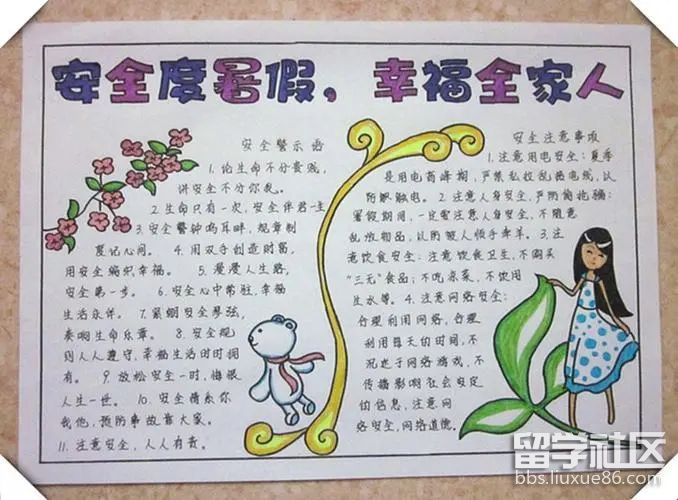 安全度暑假，幸福全家人
安全警示语
1.论生命不分贵贱，
讲安全不分你我。
2.生命只有一次，安全伴君一生
3.安全警钟鸣耳畔，规章制
度记心间。 4.用双手创造财富，
用安全编织幸福。 5.漫漫人生路，
安全第一步。 6.安全心中常驻，幸福
生活永伴。 7.紧绷安全琴弦，
奏响生命乐章。 8.安全规
则人人遵守，幸福生活时时拥
有。 9.放松安全一时，悔恨
人生一世。 10.安全情系你
我他，预防事故靠大家。
11.注意安全，人人有责。
安全注意事项
1.注意用电安全：夏季
是用电高峰期，严禁私拉乱接电线，以
防触电。2.注意人身安全，严防偷抢骗：
暑假期间，一定要注意人身安全，不随意
乱放物品，以防被人顺手牵羊。3.注
意饮食安全：注意饮食卫生，不购买
“三无”食品；不吃凉菜，不饮用
生水等。4.注意网络安全：
合理利用网络，合理
利用每天的时间，不
沉迷于网络游戏，不
传播影响社会安定
的信息，注意网
络安全，网络道德。
留学社区
bbs.liuxue86.com